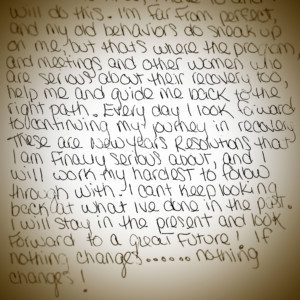 will do this. I'm far from perfect,
and my old behaviors do sneak up
on me, but thats where the program
and meetings and other women who
are serious about their recovery too,
help me and guide me back to the
right path. Every day I look forward
to continuing my journey in recovery
These are New Years Resolutions that
I am finally serious about, and I
will work my hardest to follow
through with. I cant keep looking
back at what Ive done in the past.
I will stay in the present and look
forward to a great future! If
nothing changes...... nothing
changes!